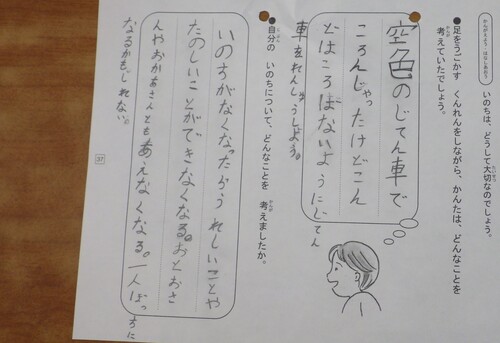 かんがえよう・はなしあおう
いのちは、どうして大切なのでしょう。
たいせつ
●足をうごかす くんれんをしながら、かんたは、どんなことを
考えていたでしょう。
かんが
空色のじてん車で
ころんじゃったけどこん
どはころばないようにじてん
車をれんしゅうしよう。
●自分の いのちについて、どんなことを 考えましたか。
じぶん
かんが
いのちがなくなったらうれしいことや
たのしいことができなくなる。おとおさ
んやおかあさんともあえなくなる。一人ぼっちに
なるかもしれない。
37